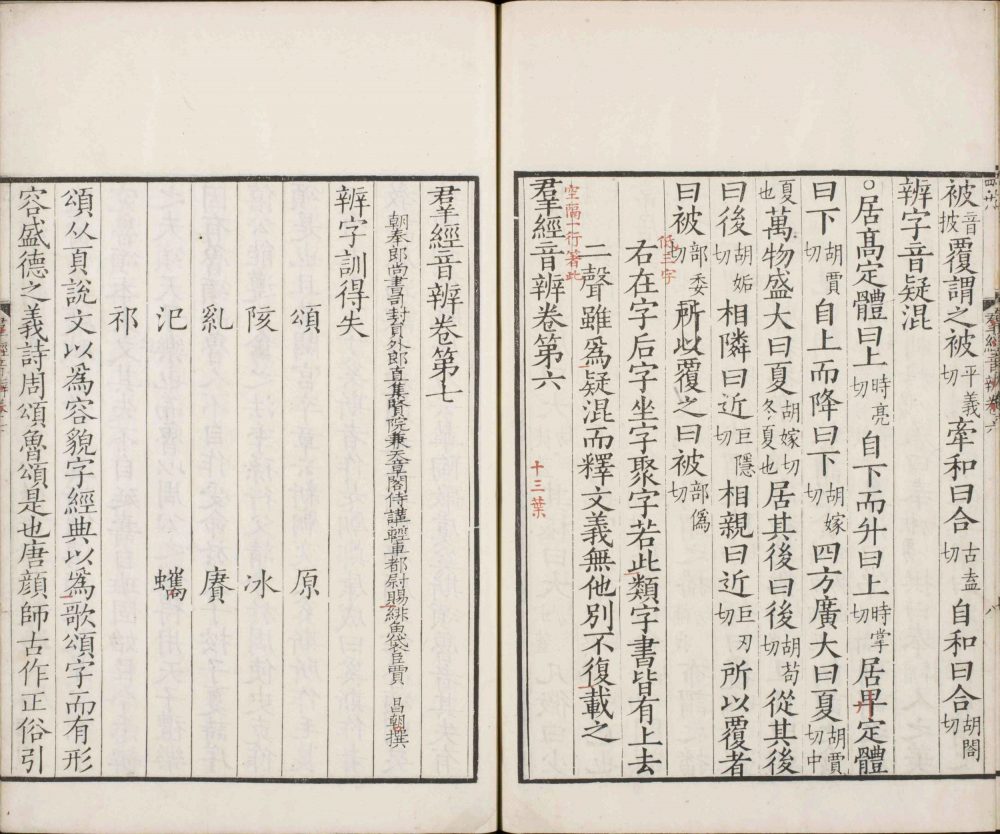 被音披覆謂之被平義切牽和曰合古盍切自和曰合胡閤切
辨字音疑混
○居高定體曰上時亮切自下而升曰上時掌切居卑定體
曰下胡賈切自上而降曰下胡嫁切四方廣大曰夏胡賈切中
夏也萬物盛大曰夏胡嫁切冬夏也居其後曰後胡苟切從其後
曰後胡姤切相隣曰近巨隱切相親曰近巨刃切所以覆者
曰被部委切所以覆之曰被部偽切
低三字
右在字后字坐字聚字若此類字書皆有上去
二聲雖為疑混而釋文義無他別不復載之
空隔一行著此
羣經音辨卷第六
十三葉
羣經音辨卷六
羣經音辨卷第七
朝奉郎尚書司封員外郎直集賢院兼天章閣侍講輕車都尉賜緋魚袋臣賈 昌朝撰
辨字訓得失
頌 原
陔 冰
亂 賡
汜 蠵
祁
頌从頁說文以為容貌字經典以為歌頌字而有形
容盛德之義詩周頌魯頌是也唐顏師古作正俗引